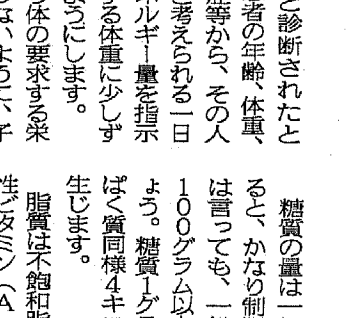 と診断されたと
者の年齢、体重、
等から、その人
と考えられる一日
ネルギー量を指示
る体重に少しず
ようにします。
体の要求する栄
ないように、子
糖質の量は一
ると、かなり制
は言っても、一
100グラム以
ょう。糖質1グ
ぱく質同様4キ
生じます。
脂質は不飽和脂
性ビタミン（A